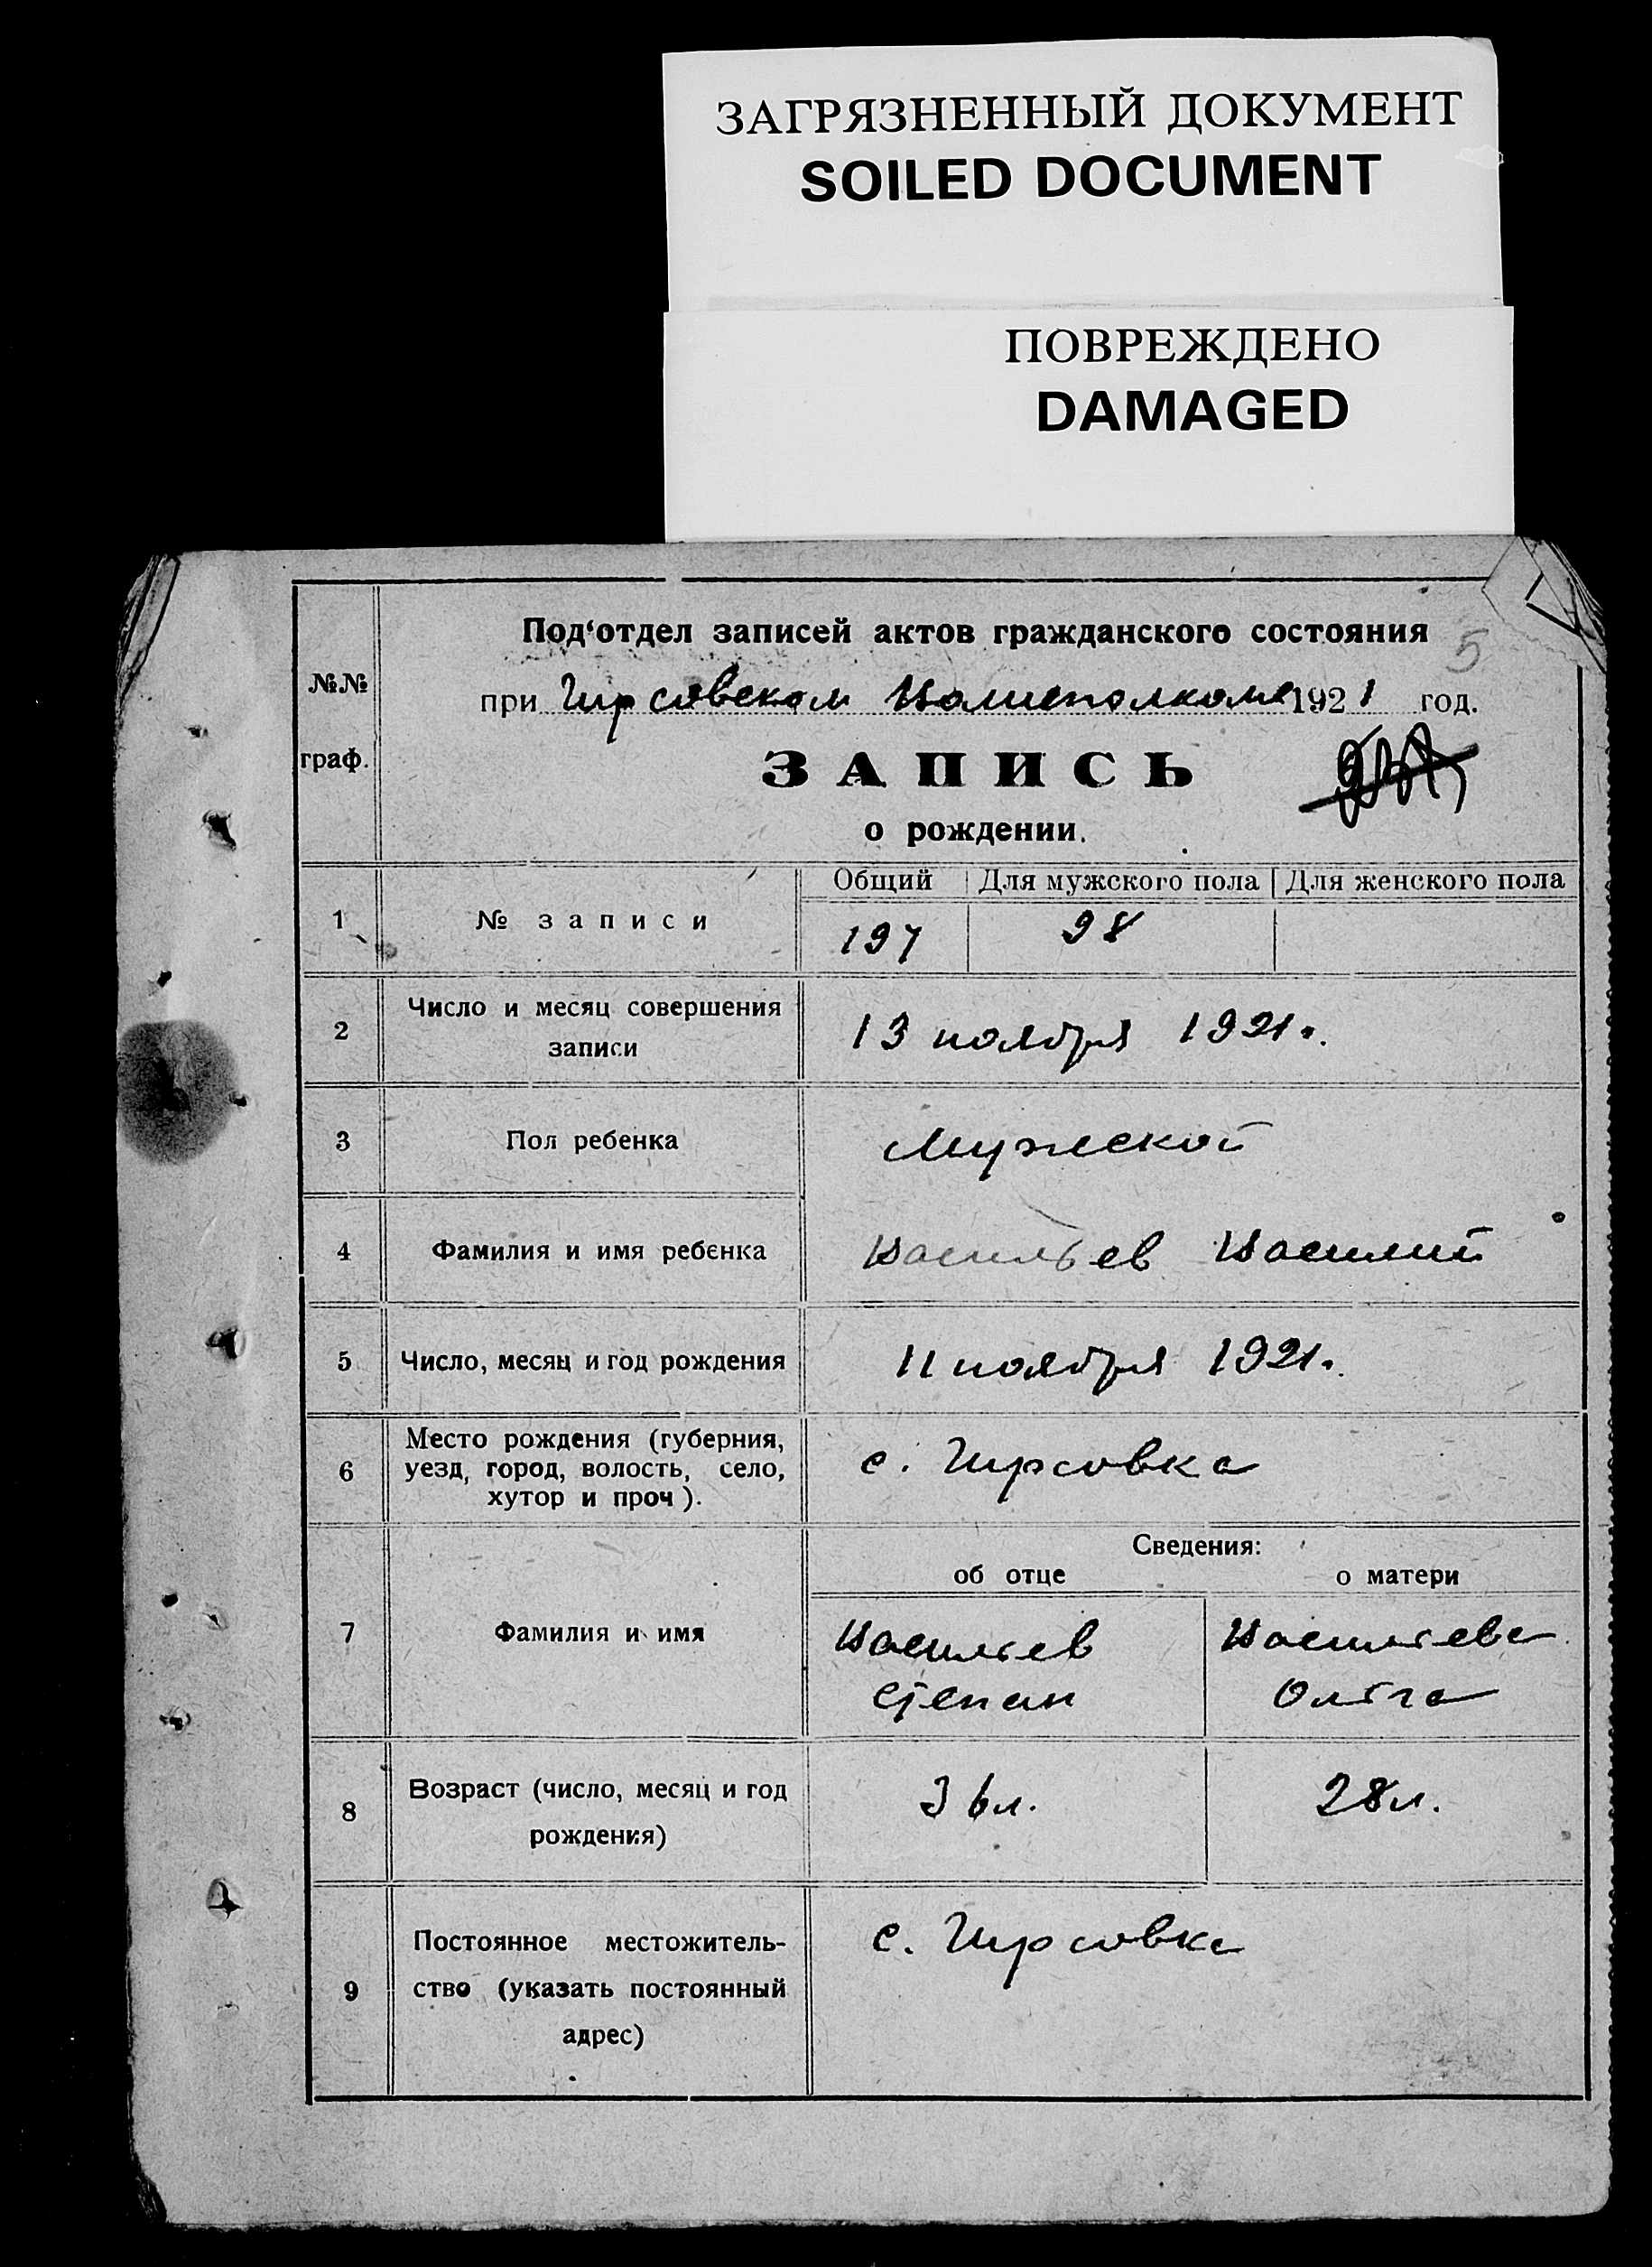 ЗАГРЯЗНЕННЫЙ ДОКУМЕНТ
SOILED DOCUMENT
ПОВРЕЖДЕНО
DAMAGED
№№
граф.
Под‘отдел записей актов гражданского состояния
5
при Гирсовском Волисполкоме 1921 год.
ЗАПИСЬ
о рождении.
Общий Для мужского пола Для женского пола
1 № записи 197 98
2 Число и месяц совершения
записи
13 ноября 1921 г.
3 Пол ребенка Мужской
4 Фамилия и имя ребенка Васильев Василий
5 Число, месяц и год рождения 11 ноября 1921 г.
6 Место рождения (губерния,
уезд, город, волость, село,
хутор и проч).
с. Гирсовка
Сведения:
об отце о матери
7 Фамилия и имя
Васильев Васильева
Степан Ольга
8 Возраст (число, месяц и год
рождения)
36 л. 28 л.
9 Постоянное местожитель-
ство (указать постоянный
адрес)
с. Гирсовка